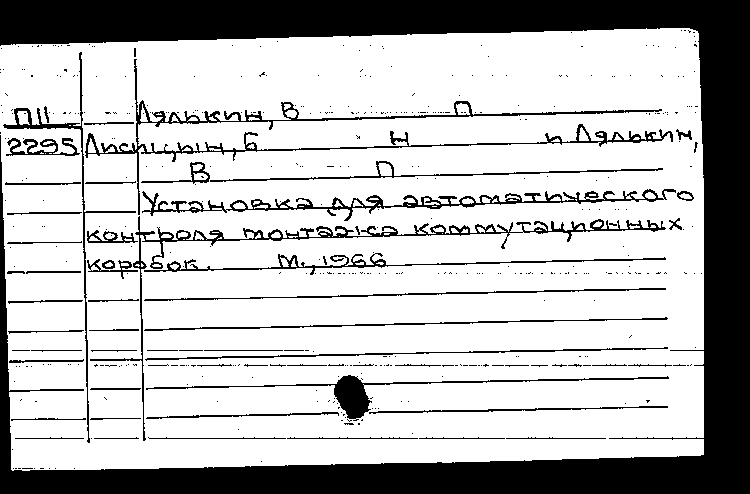 П11 Лялькин, В П
2295 Лисицын, Б Н и Лялькин,
В П
Установка для автоматического
контроля монтажа коммутационных
коробок. М., 1966